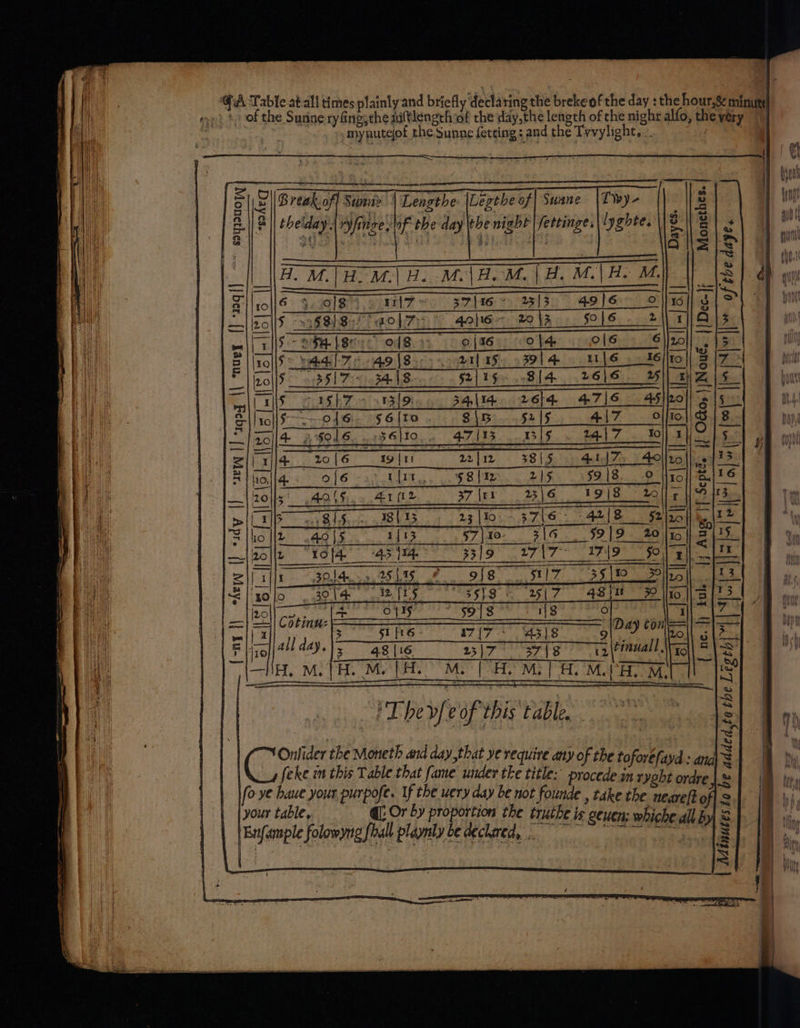 A Table at all times plainly and briefly declaring the breke of the day : the hour, & minute
of the Sunne rysing, the iust length of the day, the length of the night also, the very
mynute of the Sunne setting : and the Twylight.
Monethes Dayes. Break of the day. Sunne rysinge. Lengthe of the day Legthe of the night Suane settinge. Twylyghte. Dayes. Monethes.
H. M. H. M. H. M. H. M. H. M. H. M.
10 6 0 8 11 7 37 16 23 3 49 6 0 10
20 5 58 8 20 7 40 16 20 3 50 6 2 1
1 5 54 8 0 8 0 16 0 4 0 6 6 20
10 5 44 7 49 8 21 15 39 4 11 6 16 10 7
20 5 35 7 34 8 52 15 8 4 26 6 25 1 5
1 5 15 7 13 9 34 14 26 4 47 6 45 20 5
10 5 0 6 56 10 8 13 52 5 4 7 0 10 8
20 4 50 6 36 10 47 13 13 5 24 7 10 1 5
1 4 20 6 19 11 22 12 38 5 41 7 40 20 13
10 4 0 6 1 11 58 12 2 5 59 8 0 10 16
20 3 40 5 41 12 37 11 23 6 19 8 20 1 13
1 3 8 5 18 13 23 10 37 6 42 8 52 20 12
10 2 40 5 1 13 57 10 3 6 59 9 20 10 15
20 2 10 4 43 14 33 9 27 7 17 9 50 1 11
1 1 30 4 25 15 9 8 51 7 35 10 30 20 13
10 0 30 4 12 15 35 8 25 7 48 11 30 10 13
20 4 0 15 59 8 1 8 0 1 7
1 3 51 16 17 7 43 8 9 20
10 3 48 16 23 7 37 8 12 10
Cotinue all day.
Day continuall.
H. M. H. M. H. M. H. M. H. M. H. M.
ber. Ianu. Febr. Mar. Apr. Maye. Iu-
Dec- Noue. Octo. Septe. Aug Iul. ne.
Minutes to be added, to the Legth of the daye.
The vse of this table.
COnsider the Moneth and day, that ye require any of the toforesayd : and
seke in this Table that same vnder the title: procede in ryght ordre,
so ye haue your purpose. If the uery day be not founde, take the nearest of
your table, Or by proportion the truthe is geuen: whiche all by
Ensample folowyng shall playnly be declared,